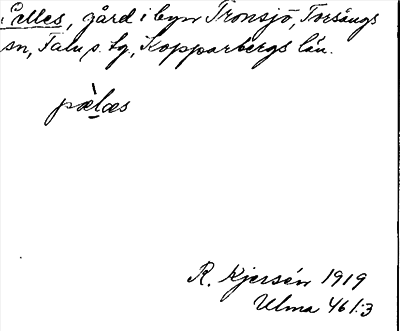 Pelles, gård i byn Tronsjö, Torsångs
sn, Falu s. tg., Kopparbergs län.
pæ̀læs
R. Kjersén 1919
Ulma 461:3